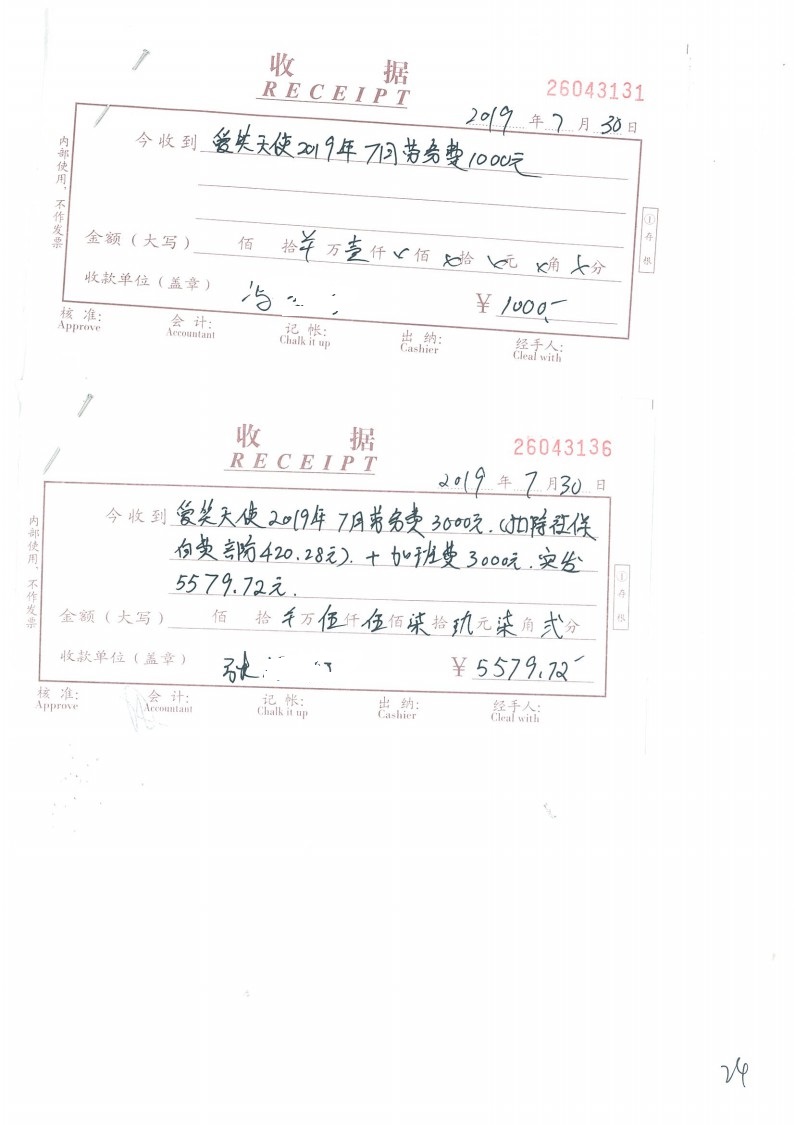 收 据
RECEIPT
26043131
2019 年 7 月 30 日
今收到 爱笑天使2019年7月劳务费1000元
金额(大写) 佰 拾 万 壹 仟 × 佰 × 拾 × 元 × 角 × 分
收款单位(盖章) 冯 ¥ 1000.-
核 准: 会 计: 记 帐: 出 纳: 经手人:
Approve Accountant Chalk it up Cashier Cleal with
内部使用,不作发票
①存根
收 据
RECEIPT
26043136
2019 年 7 月 30 日
今收到 爱笑天使2019年7月劳务费3000元.(扣除社保
自费部份420.28元). + 加班费3000元.实发
5579.72元.
金额(大写) 佰 拾 万 伍 仟 伍 佰 柒 拾 玖 元 柒 角 贰 分
收款单位(盖章) 张 ¥ 5579.72-
核 准: 会 计: 记 帐: 出 纳: 经手人:
Approve Accountant Chalk it up Cashier Cleal with
内部使用,不作发票
①存根
24